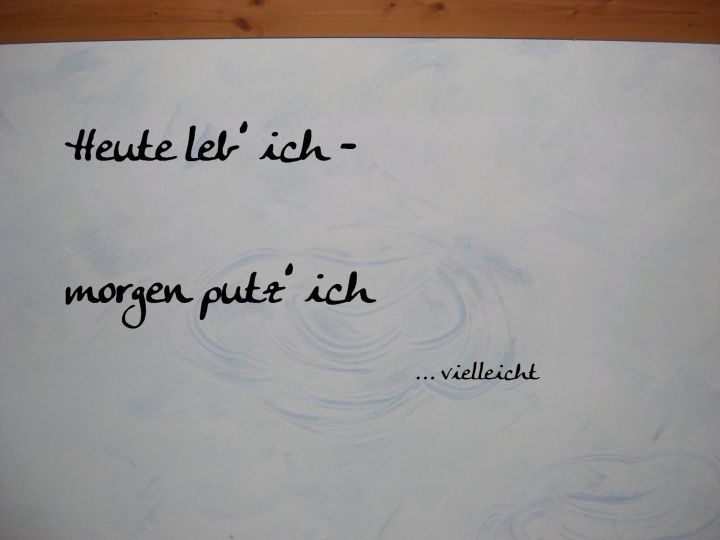 Heute leb' ich -
morgen putz' ich
... vielleicht